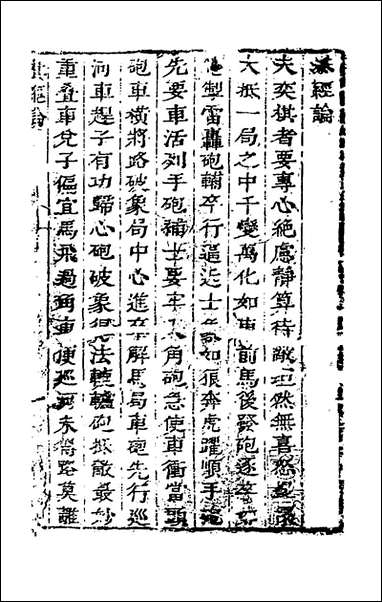 棋經論
夫奕棋者要專心絶慮靜算待敵坦然無喜然
大抵一局之中千變萬化如車前馬後發砲逐卒
電掣雷轟砲輔卒行逼近士如狼奔虎躍順手砲
先要車活列手砲補士要牢士角砲急使車衝當頭
砲車橫將路破象局中心進卒解馬局車砲先行巡
河車趕子有功歸心砲破象得法轆轤砲抵敵最妙
重叠車兌子偏宜馬飛過河車便巡河東營路莫離
棋經論